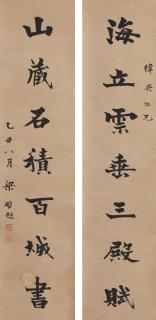 海立雲垂三殿賦
緯興仁兄
山藏石積百城書
乙丑八月 梁啓超